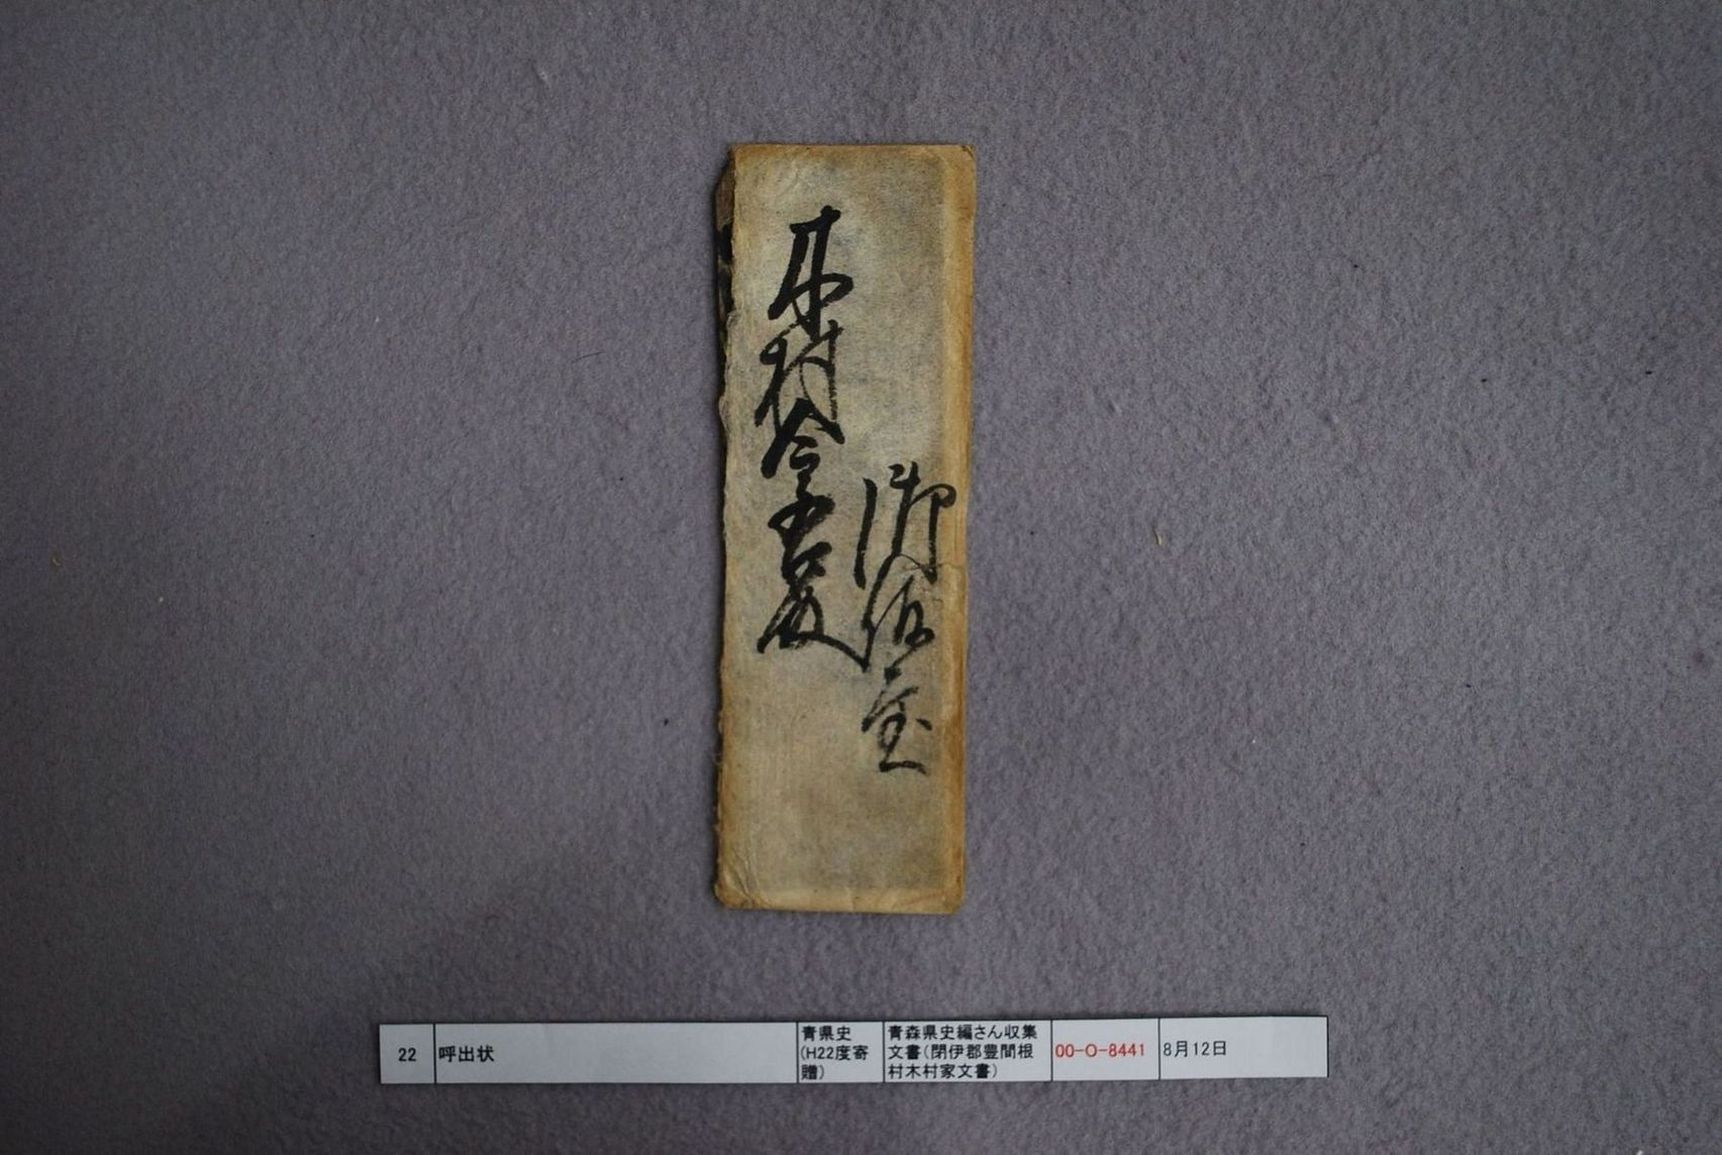 御佐屋
木村令吉殿
22 呼出状 青県史 (H22度寄贈) 青森県史編さん収集文書(閉伊郡豊間根村木村家文書) 00-O-8441 8月12日